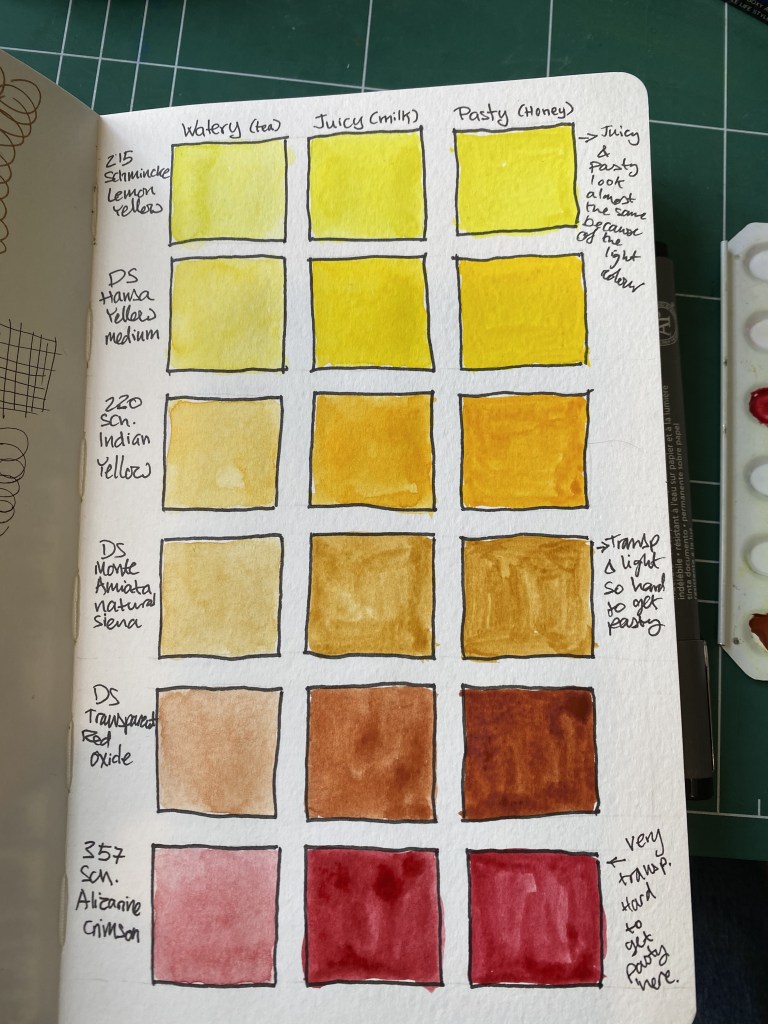 Watery (tea)
Juicy (milk)
Pasty (Honey)
215
Schmincke
Lemon
Yellow
→ Juicy
&
Pasty
look
almost
the same
because
of the
light
colour
DS
Hansa
Yellow
medium
220
Sch.
Indian
Yellow
DS
Monte
Amiata
natural
Siena
→ Transp
& light
so hard
to get
pasty
DS
Transparent
Red
Oxide
357
Sch.
Alizarine
Crimson
← Very
transp.
Hard
to
get
pasty
here.
indélébile • résistant à l'eau sur papier et à la lumière